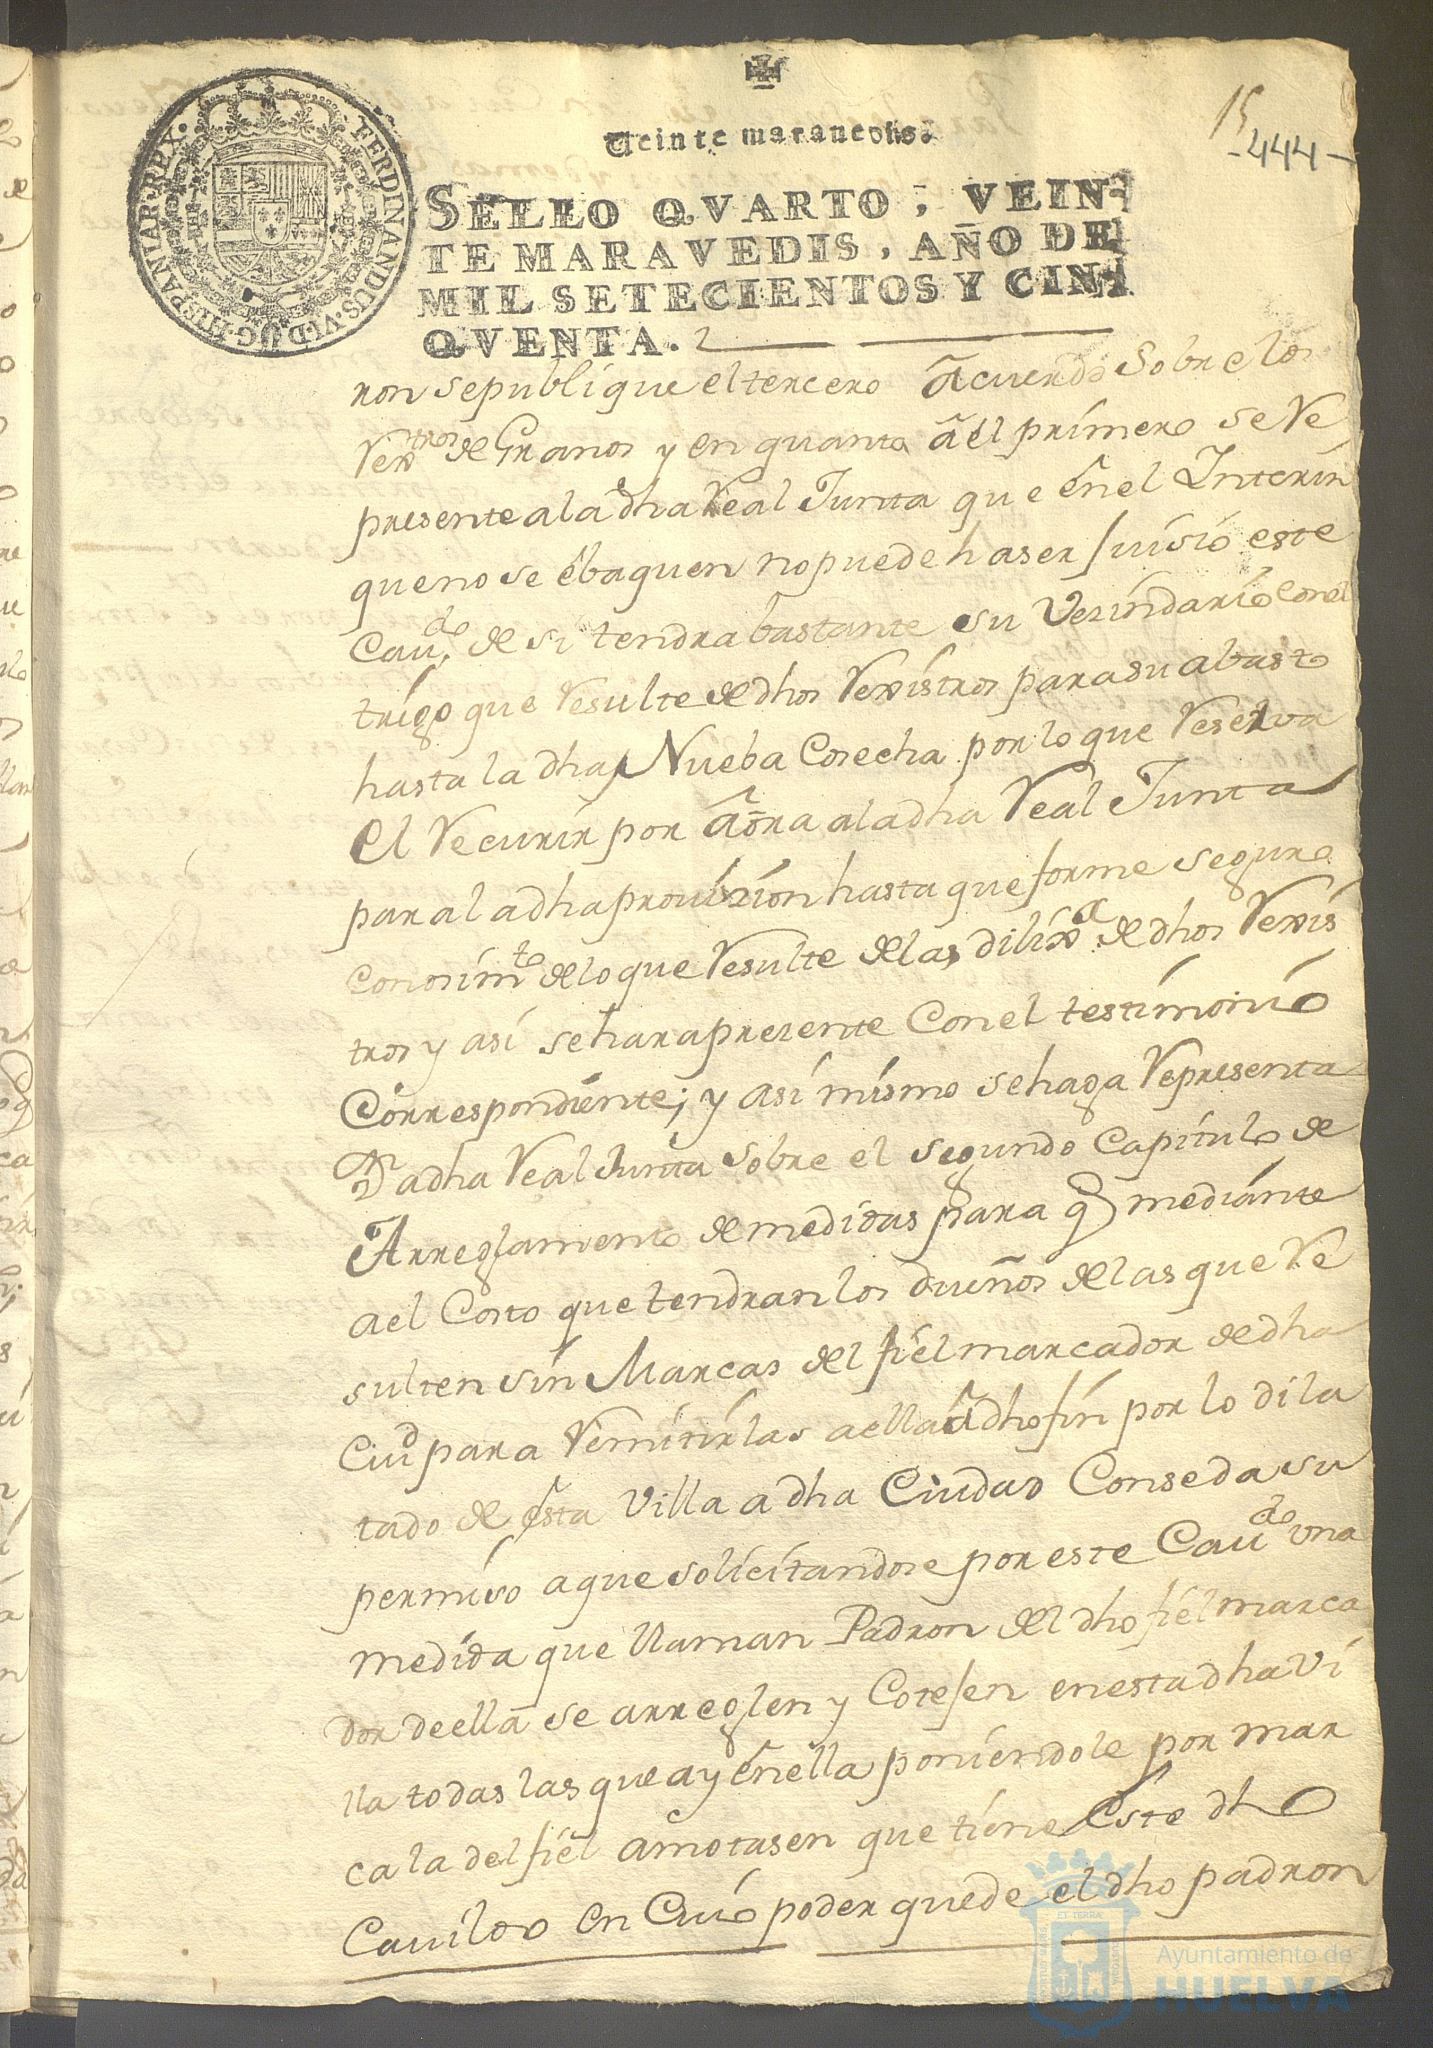 15
-444-
Veinte maravedis.
SELLO QVARTO, VEIN-
TE MARAVEDIS, AÑO DE
MIL SETECIENTOS Y CIN-
QVENTA.
FERDINANDUS·VI·D·G·HISPANIAR·REX·
ron se publique el tercero acuerdo Sobre los
Rexros de Granos y en quanto a el primero se Re
presente a la dha Real Junta que en el Interin
que no se ebaquen no puede haser juisio este
Cavdo de si tendra bastante su Vezindario con el
trigo que Resulte de dhos Rexistros para su abasto
hasta la dha Nueba Cosecha por lo que Reserva
el Recurir por aora a la dha Real Junta
para la dha provizion hasta que forme seguro
conosimto de lo que Resulte de las dilixas de dhos Rexis
tros y asi se hara prezente Con el testimonio
Correspondiente; y asi mismo se haga Representa
on a dha Real Junta sobre el segundo capitulo de
Arreglamento de medidas para q mediante
a el Costo que tendran los dueños de las que Re
sulten sin Marcas del fiel marcador de dha
Ciud para Remitirlas a ella a dho fin por lo dila
tado de esta Villa a dha Ciudad Conseda su
permiso a que solicitandose por este Cavdo una
medida que llaman Padron del dho fiel marca
dor de ella se arreglen y Cotejen en esta dha vi
lla todas las que ay en ella poniendole por mar
ca la del fiel amotasen que tiene Este dho
Cavildo en Cuio poder quede el dho padron
ET TERRÆ
Ayuntamiento de
HUELVA